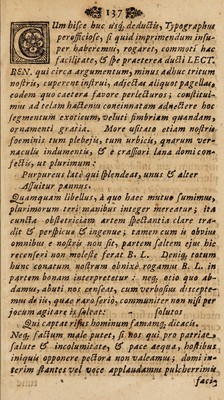 137
CUm hisce huc usq; deductis, Typographus
perofficiose, si quid imprimendum insu-
per haberemus, rogaret, commoti hac
facilitate, & spe praeterea ducti LECT.
BEN. qui circa argumentum, minus adhuc tritum
nostris, cuperent instrui, adjectas aliquot pagellas,
eodem quo caetera favore perlecturos; constitui-
mus ad telam hactenus concinnatam adnectere hoc
segmentum exotieum, veluti fimbriam quandam,
ornamenti gratia. More usitato etiam nostris
foeminis tum plebejis, tum urbicis, quarum ver-
naculi indumentis, & è crassiori lana domi con-
fectis, ut plurimum:
Purpureus latè qui splendeat, unus & alter
Assuitur pannus.
Quamquam libellus, à quo haec mutuo sumimus,
plurimorum teri manibus integer mereatur, ita
cuncta obstetriciam artem spectantia clare tra-
dit & perspicuè & ingenue; tamen cum is obvius
omnibus è nostris non sit, partem saltem ejus hic
recenseri non molestè ferat B. L. Deniq; totum
hunc conatum nostrum obnixè rogamus B. L. in
partem bonam interpretetur: neq; otio quo ab-
damur, abuti nos censeat, cum verbosius discepte-
mus de iis, quae raro serio, communiter non nisi per
jocum agitare is solvat: solutos
Qui captat risus hominum famamq; dicacis.
Neq; factum male putet, si nos qui pro patriae
salute & incolumitate, & pace aequa, hostibus
iniquis opponere pectora non valeamus; domi in-
terim stantes vel voce applaudamus pulcherrimis
faci-